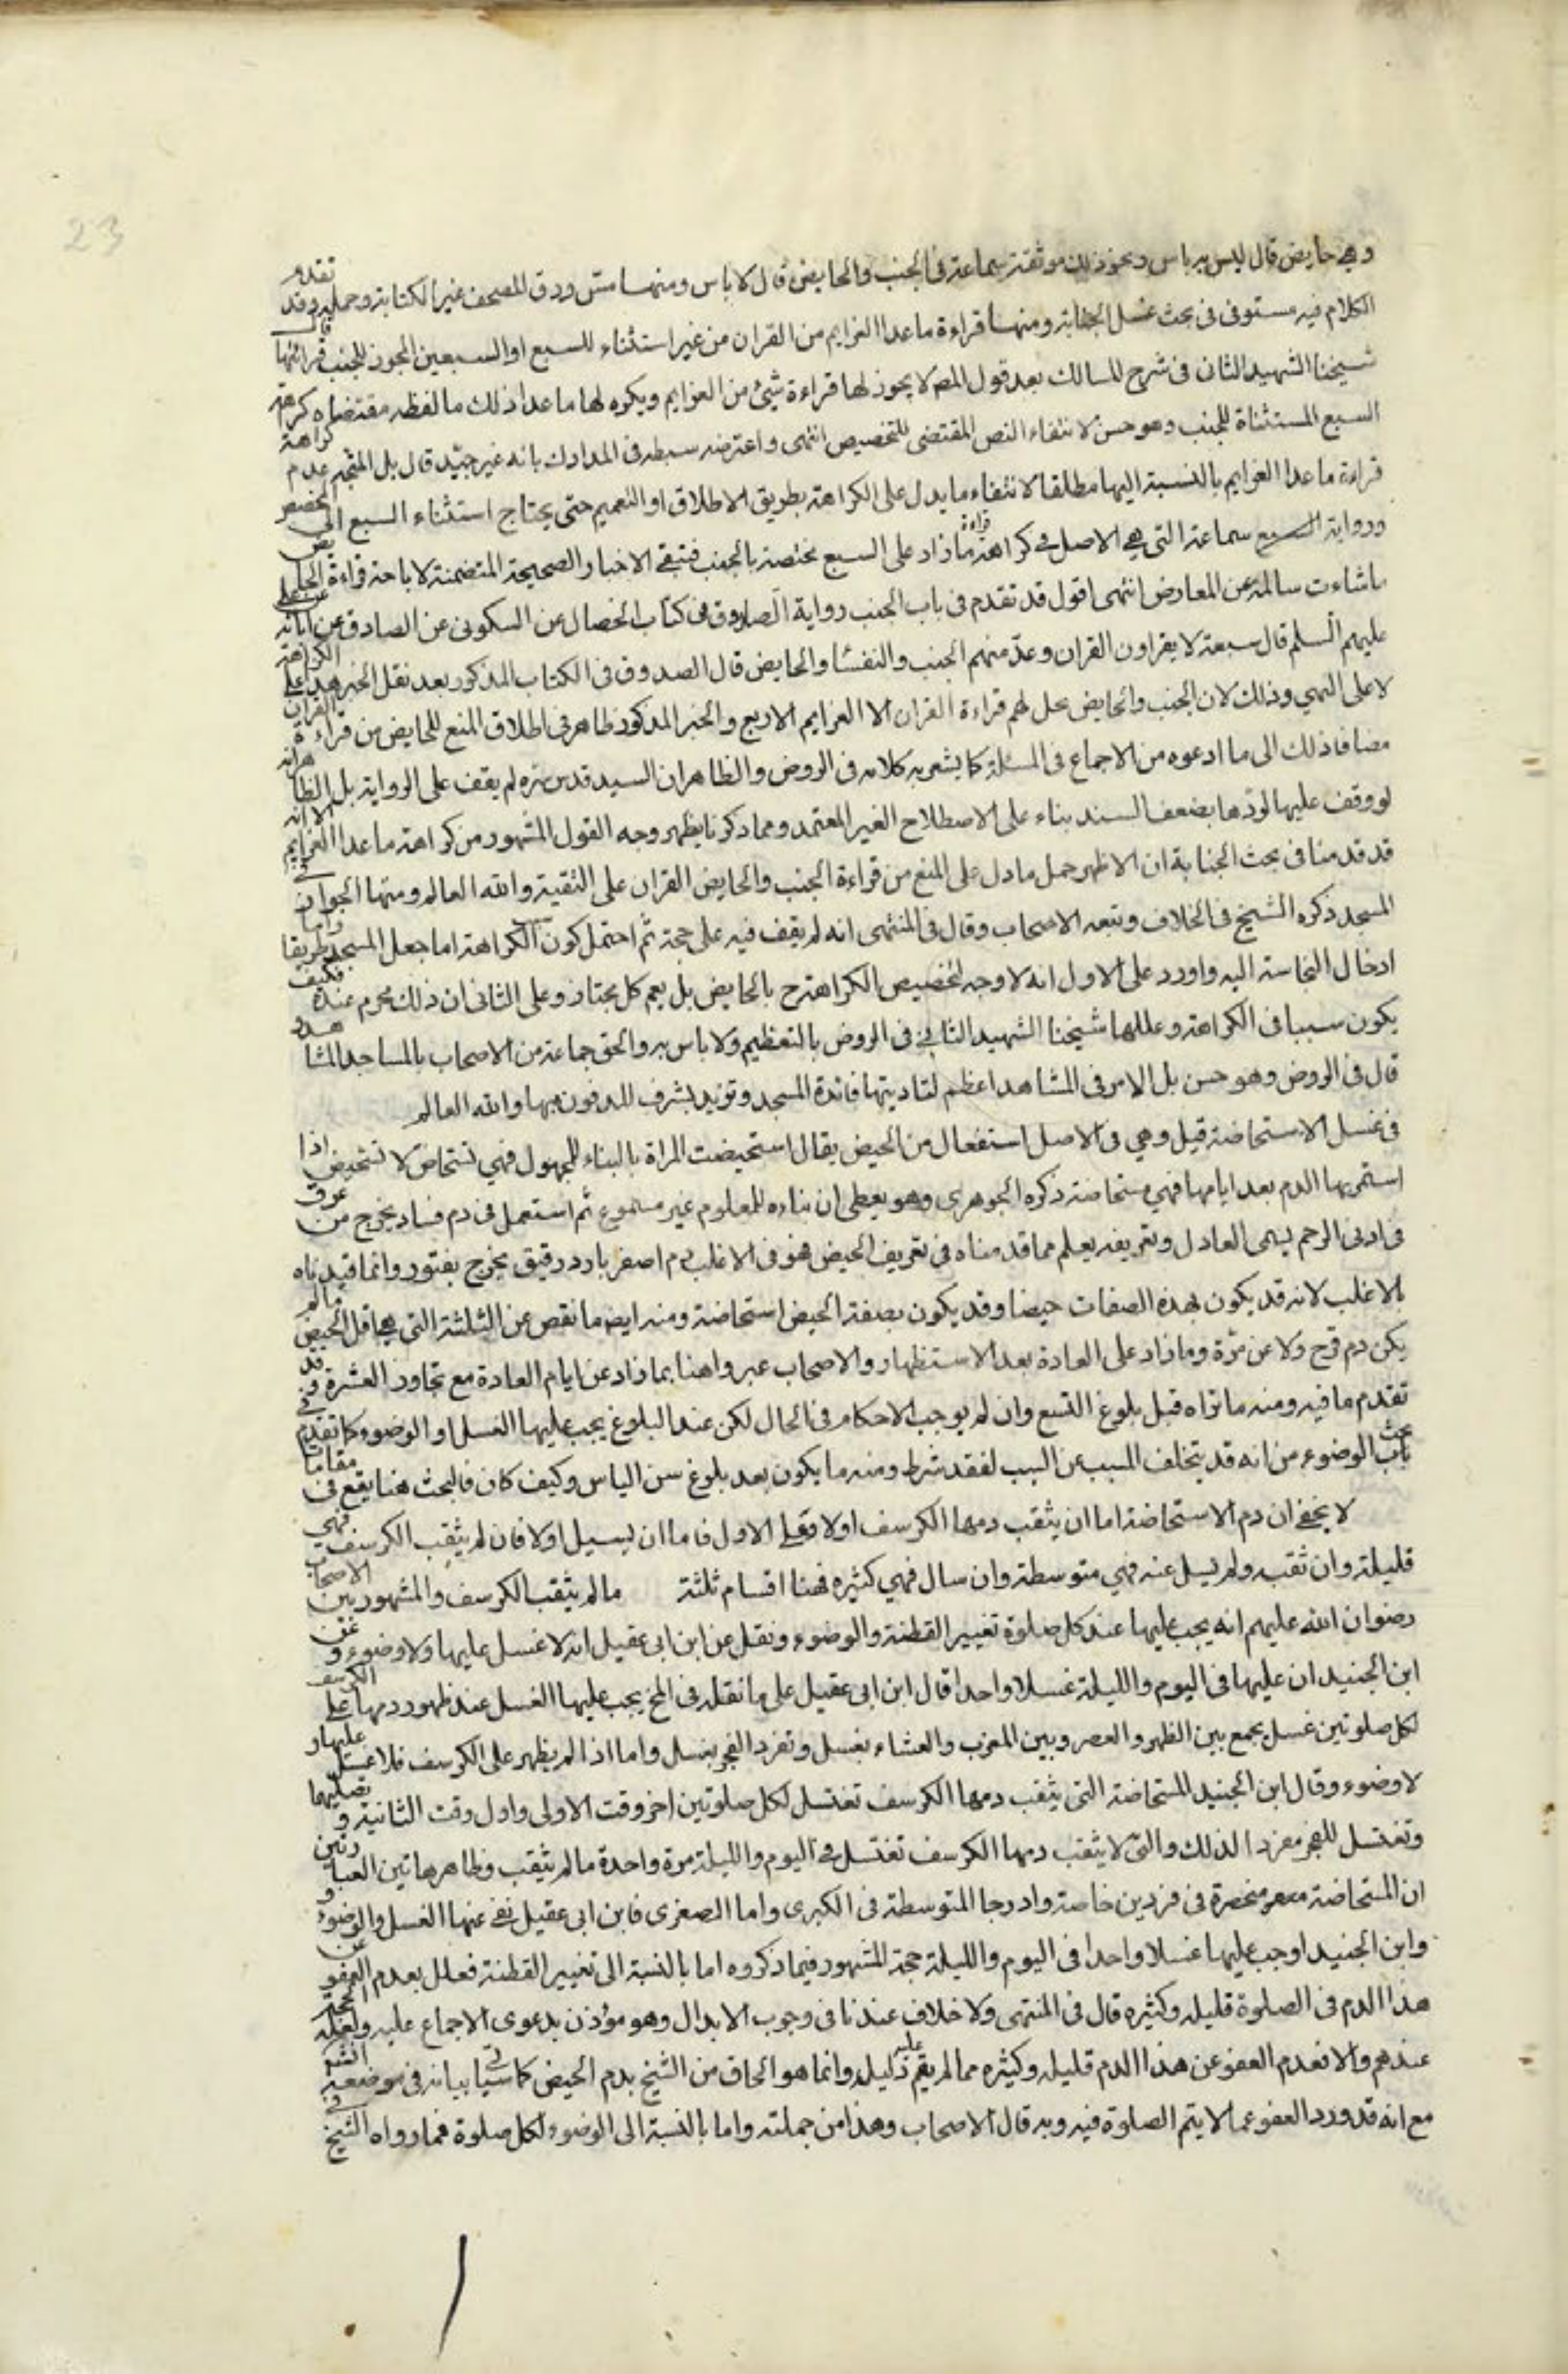 23
وهي حايض قال ليس به باس ونحو ذلك موثقة سماعة في الجنب والحايض قال لا باس ومنها مس ورق المصحف غير الكتابة وحمله وقد تقدم
الكلام فيه مستوفى في بحث غسل الجنابة ومنها قراءة ما عدا العزايم من القران من غير استثناء للسبع او السبعين المجوز للجنب قرائتها قال
شيخنا الشهيد الثاني في شرح المسالك بعد قول المص لا يجوز لها قراءة شيئ من العزايم ويكره لها ما عدا ذلك ما لفظه مقتضاه كراهة
السبع المستثناة للجنب وهو حسن لانتفاء النص المقتضي للتخصيص انتهى واعترضه سبطه في المدارك بانه غير جيد قال بل المتجه عدم كراهة
قراءة ما عدا العزايم بالنسبة اليها مطلقا لانتفاء ما يدل على الكراهة بطريق الاطلاق او التعميم حتى يحتاج استثناء السبع الى المخصص
ورواية السبع سماعة التي هي الاصل في كراهة قراءة ما زاد على السبع مختصة بالجنب فتبقى الاخبار الصحيحة المتضمنة لاباحة قراءة الحايض
ما شاءت سالمة عن المعارض انتهى اقول قد تقدم في باب الجنب رواية الصدوق في كتاب الخصال عن السكوني عن الصادق عن ابائه عن علي
عليهم السلم قال سبعة لا يقراون القران وعد منهم الجنب والنفساء والحايض قال الصدوق في الكتاب المذكور بعد نقل الخبر هذا على الكراهة
لا على النهي وذلك لان الجنب والحايض يحل لهم قراءة القران الا العزايم الاربع والخبر المذكور ظاهر في اطلاق المنع للحايض من قراءة القران
مضافا ذلك الى ما ادعوه من الاجماع في المسئلة كما يشعر به كلامه في الروض والظاهر ان السيد قدس سره لم يقف على الرواية بل الظاهر انه
لو وقف عليها لردها بضعف السند بناء على الاصطلاح الغير المعتمد ومما ذكرنا يظهر وجه القول المشهور من كراهة ما عدا العزايم الا انه
قد قدمنا في بحث الجنابة ان الاظهر حمل ما دل على المنع من قراءة الجنب والحايض القران على التقية والله العالم ومنها الجواز في
المسجد ذكره الشيخ في الخلاف وتبعه الاصحاب وقال في المنتهى انه لم يقف فيه على حجة ثم احتمل كون سبب الكراهة اما جعل المسجد طريقا واما
ادخال النجاسة اليه واورد على الاول انه لا وجه لتخصيص الكراهة ح بالحايض بل يعم كل مجتاز وعلى الثاني ان ذلك محرم عنده فكيف
يكون سببا في الكراهة وعللها شيخنا الشهيد الثاني في الروض بالتعظيم ولا باس به والحق جماعة من الاصحاب بالمساجد المشاهد
قال في الروض وهو حسن بل الامر في المشاهد اعظم لتاديتها فائدة المسجد وتزيد بشرف المدفون بها والله العالم
في غسل الاستحاضة قيل وهي في الاصل استفعال من الحيض يقال استحيضت المراة بالبناء للمجهول فهي تستحاض لا تستحيض اذا
استمر بها الدم بعد ايامها فهي مستحاضة ذكره الجوهري وهو يعطي ان بناءه للمعلوم غير مسموع ثم استعمل في دم فساد يخرج من عرق
في ادنى الرحم يسمى العادل وتعريفه يعلم مما قدمناه في تعريف الحيض فهو في الاغلب دم اصفر بارد رقيق يخرج بفتور وانما قيدناه
بالاغلب لانه قد يكون بهذه الصفات حيضا وقد يكون بصفة الحيض استحاضة ومنه ايض ما نقص عن الثلثة التي هي اقل الحيض ما لم
يكن دم قرح ولا عن مرة وما زاد على العادة بعد الاستظهار والاصحاب عبروا هنا بما زاد عن ايام العادة مع تجاوز العشرة وقد
تقدم ما فيه ومنه ما تراه قبل بلوغ التسع وان لم يوجب الاحكام في الحال لكن عند البلوغ يجب عليها الغسل او الوضوء كما تقدم في
بحث باب الوضوء من انه قد يتخلف المسبب عن السبب لفقد شرط ومنه ما يكون بعد بلوغ سن الياس وكيف كان فالبحث هنا يقع في مقامات
لا يخفى ان دم الاستحاضة اما ان يثقب دمها الكرسف اولا وعلى الاول فاما ان يسيل اولا فان لم يثقب الكرسف فهي
قليلة وان ثقبه ولم يسل عنه فهي متوسطة وان سال فهي كثيره فهنا اقسام ثلثة ما لم يثقب الكرسف والمشهور بين الاصحاب
رضوان الله عليهم انه يجب عليها عند كل صلوة تغيير القطنة والوضوء ونقل عن ابن ابي عقيل انه لا غسل عليها ولا وضوء وعن
ابن الجنيد ان عليها في اليوم والليلة غسلا واحدا قال ابن ابي عقيل على ما نقله في المخ يجب عليها الغسل عند ظهور دمها على الكرسف
لكل صلوتين غسل يجمع بين الظهر والعصر وبين المغرب والعشاء بغسل وتفرد الفجر بغسل واما اذا لم يظهر على الكرسف فلا غسل عليها و
لا وضوء وقال ابن الجنيد المستحاضة التي يثقب دمها الكرسف تغتسل لكل صلوتين اخر وقت الاولى واول وقت الثانية وتصليهما
وتغتسل للفجر مفردا لذلك والتي لا يثقب دمها الكرسف تغتسل في اليوم والليلة مرة واحدة ما لم يثقب وظاهر هاتين العبارتين
ان المستحاضة منحصرة في فردين خاصة وادرجا المتوسطة في الكبرى واما الصغرى فابن ابي عقيل نفى عنها الغسل والوضوء و
وابن الجنيد اوجب عليها غسلا واحدا في اليوم والليلة حجة المشهور فيما ذكروه اما بالنسبة الى تغيير القطنة فعلل بعدم العفو عن
هذا الدم في الصلوة قليله وكثيره قال في المنتهى ولا خلاف عندنا في وجوب الابدال وهو مؤذن بدعوى الاجماع عليه ولعله الحجة
عندهم والا فعدم العفو عن هذا الدم قليله وكثيره مما لم يقم عليه دليل وانما هو الحاق من الشيخ بدم الحيض كما سياتي بيانه في موضعه انشم
مع انه قد ورد العفو عما لا يتم الصلوة فيه وبه قال الاصحاب وهذا من جملته واما بالنسبة الى الوضوء لكل صلوة فما رواه الشيخ في